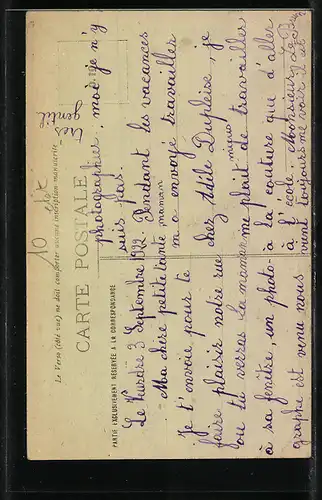 Le Verso (côté vue) ne doit comporter aucune inscription manuscrite
CARTE POSTALE
PARTIE EXCLUSIVEMENT RÉSERVÉE A LA CORRESPONDANCE
10
Le 3 Septembre 1922.
Ma chère petite tante
Je t'envoie pour te
faire plaisir notre rue
où tu verras la maman
à sa fenêtre, un photo-
graphe est venu nous
photographier, moi je n'y
suis pas.
Pendant les vacances
maman
m'a envoyé travailler
chez Adèle Dupleise, je
mieux
me plait de travailler
à la couture que d'aller
à l'école. Monsieur
vient toujours me voir il est
très
gentil